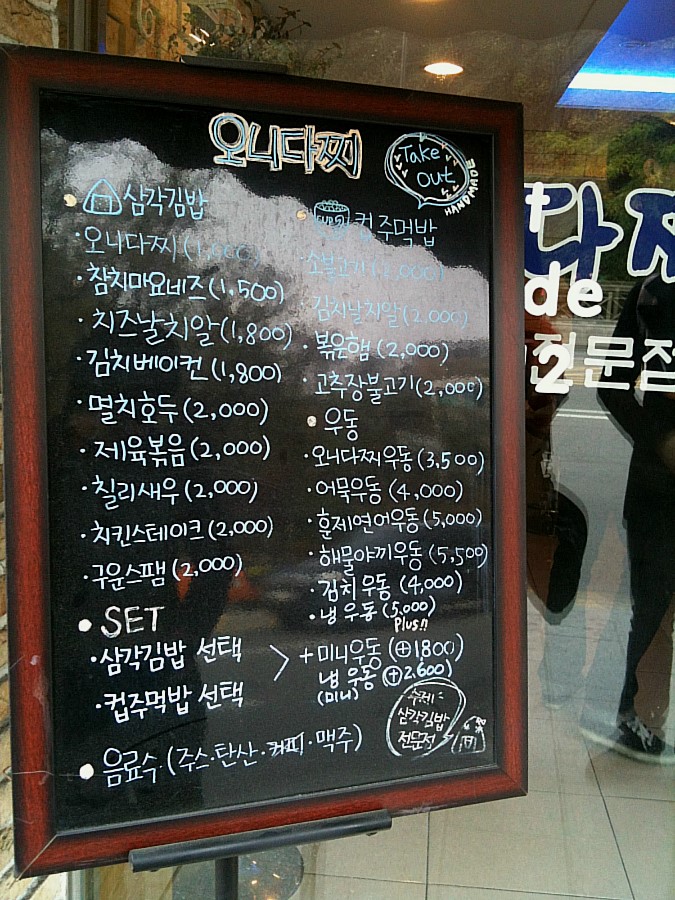 오니다찌
Take
out
삼각김밥
· 오니다찌 (1,000)
· 참치마요네즈 (1,500)
· 치즈날치알 (1,800)
· 김치베이컨 (1,800)
· 멸치호두 (2,000)
· 제육볶음 (2,000)
· 칠리새우 (2,000)
· 치킨스테이크 (2,000)
· 구운스팸 (2,000)
컵주먹밥
· 소불고기 (2,000)
· 김치날치알 (2,000)
· 볶은햄 (2,000)
· 고추장불고기 (2,000)
우동
· 오니다찌우동 (3,500)
· 어묵우동 (4,000)
· 훈제연어우동 (5,000)
· 해물야끼우동 (5,500)
· 김치우동 (4,000)
· 냉우동 (5,000)
· SET
· 삼각김밥 선택
· 컵주먹밥 선택
Plus!!
> + 미니우동 (+1800)
냉우동 (+2,600)
(미니)
수제
삼각김밥
전문점
음료수 (주스·탄산·커피·맥주)
다찌
de
전문점
2